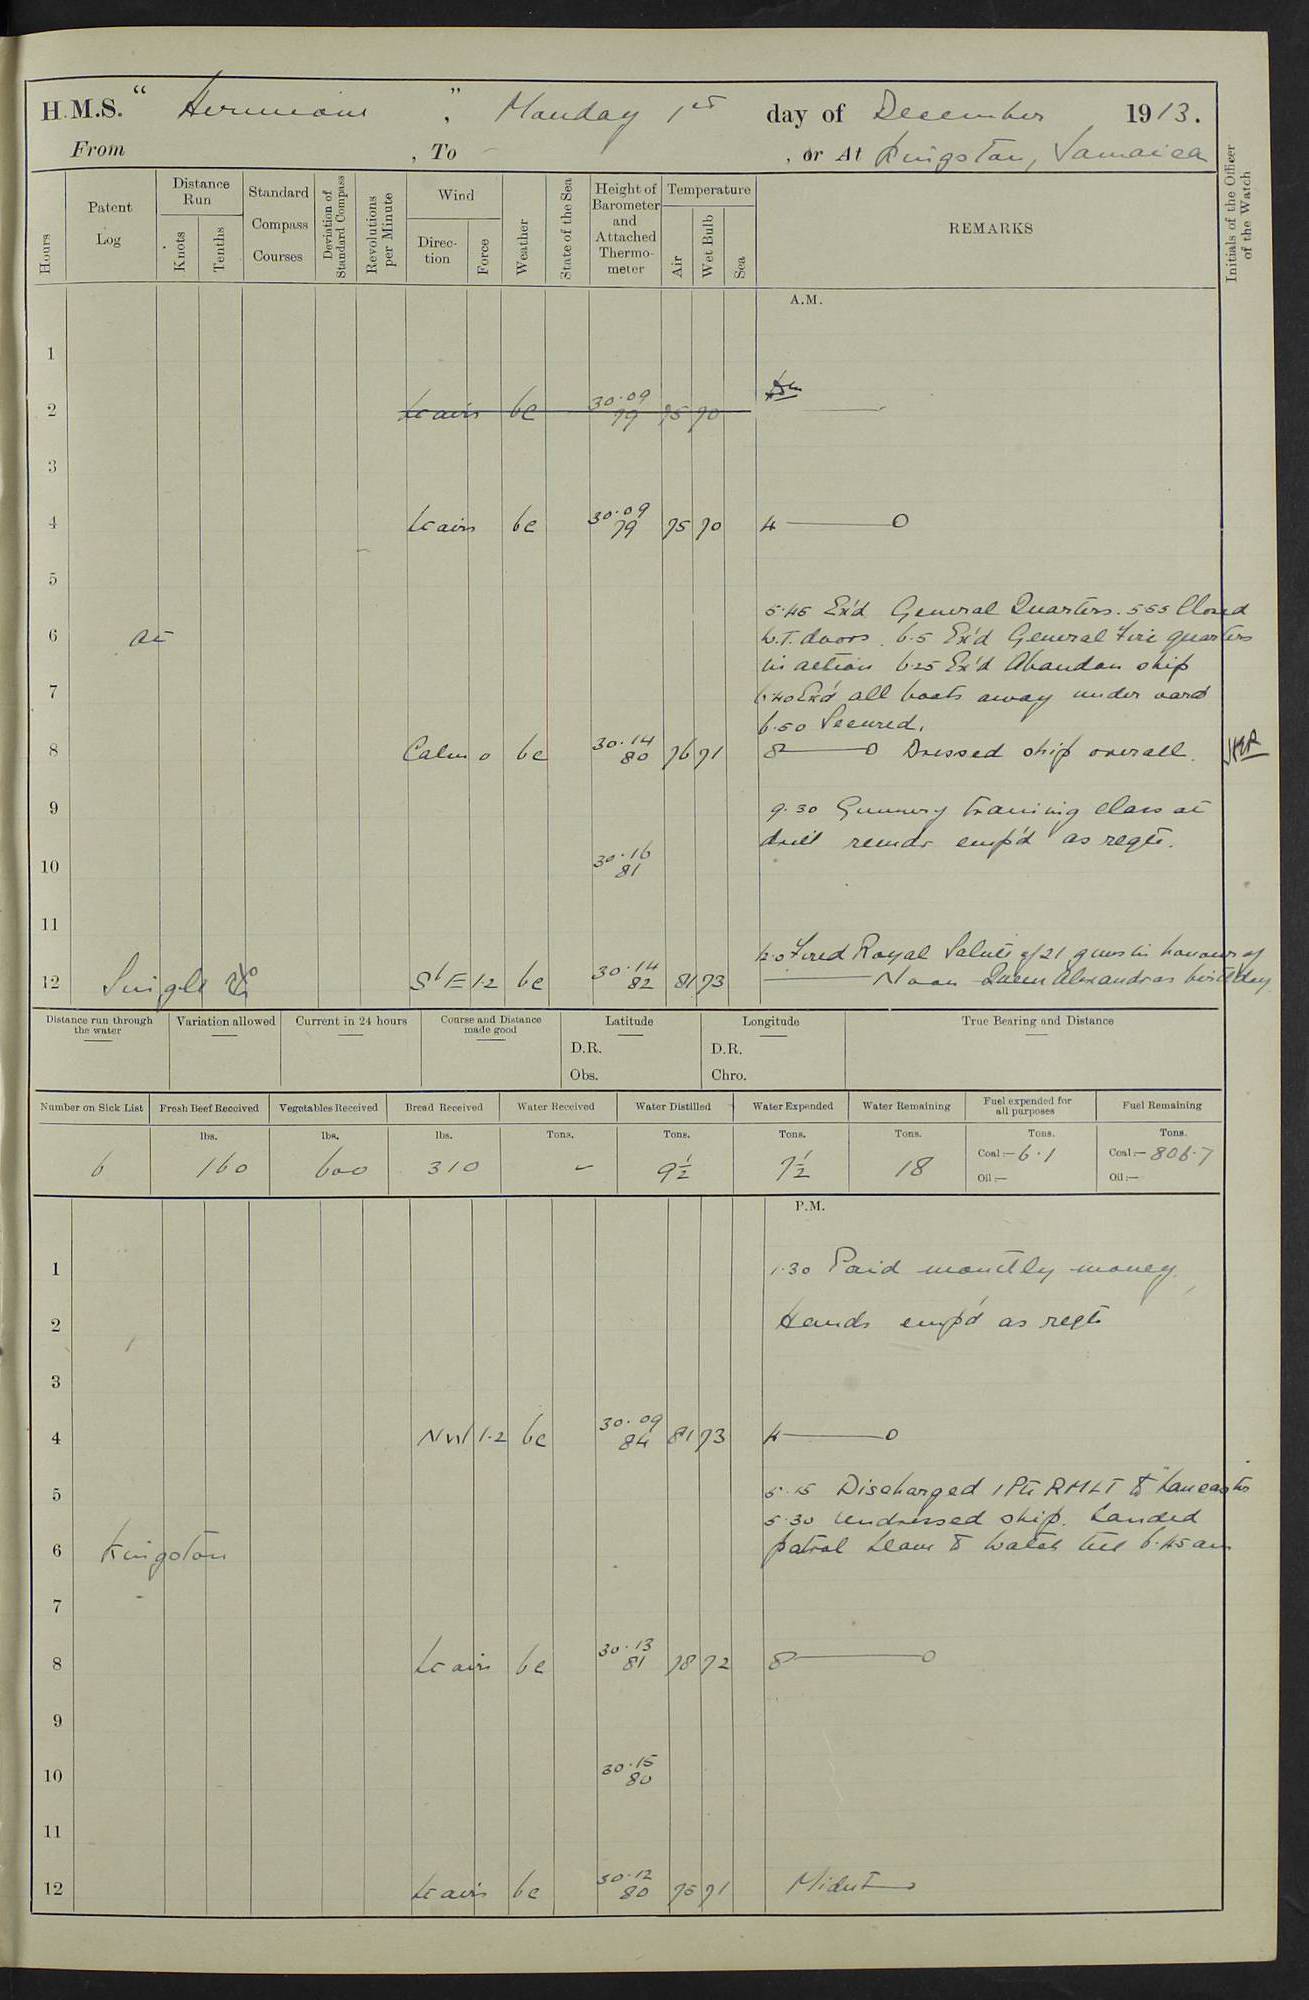 H.M.S. “ Hermione ”, Monday 1st day of December 1913.
From , To - , or At Kingston, Jamaica
Hours
Patent Log
Distance Run
Knots
Tenths
Standard Compass Courses
Deviation of Standard Compass
Revolutions per Minute
Wind
Direction
Force
Weather
State of the Sea
Height of Barometer and Attached Thermometer
Temperature
Air
Wet Bulb
Sea
REMARKS
Initials of the Officer of the Watch
A.M.
1
2 Lt airs bc 30.09 79 75 70
3
4 Lt airs bc 30.09 79 75 70 4 — 0
5
5.45 Ex'd General Quarters. 5.55 Closed
6 At W.T. doors. 6.5 Ex'd General Fire quarters
in action 6.25 Ex'd Abandon ship
7 6.40 Ex'd all boats away under oars
6.50 Secured.
8 Calm 0 bc 30.14 80 76 71 8 — 0 Dressed ship overall.
9 9.30 Gunnery training class at
drill remdr emp'd as reqte.
10 30.16 81
11
12.0 Fired Royal Salute of 21 guns in honour of
12 Single SbE 1.2 bc 30.14 82 81 73 — Noon Queen Alexandras birthday
Distance run through the water
Variation allowed
Current in 24 hours
Course and Distance made good
Latitude
D.R.
Obs.
Longitude
D.R.
Chro.
True Bearing and Distance
Number on Sick List
Fresh Beef Received
Vegetables Received
Bread Received
Water Received
Water Distilled
Water Expended
Water Remaining
Fuel expended for all purposes
Fuel Remaining
lbs. lbs. lbs. Tons. Tons. Tons. Tons. Tons. Tons.
6 160 600 310 - 9½ 7½ 18 Coal:— 6.1 Coal:— 806.7
Oil:— Oil:—
P.M.
1 1.30 Paid monthly money
2 Hands emp'd as reqte
3
4 NW 1.2 bc 30.09 84 81 73 4 — 0
5 5.15 Discharged 1 Pte RMLI to "Lancaster"
5.30 Undressed ship. Landed
6 Kingston patrol Leave to watch till 6.45 am
7
8 Lt airs bc 30.13 81 78 72 8 — 0
9
10 30.15 80
11
12 Lt airs bc 30.12 80 75 71 Midnt